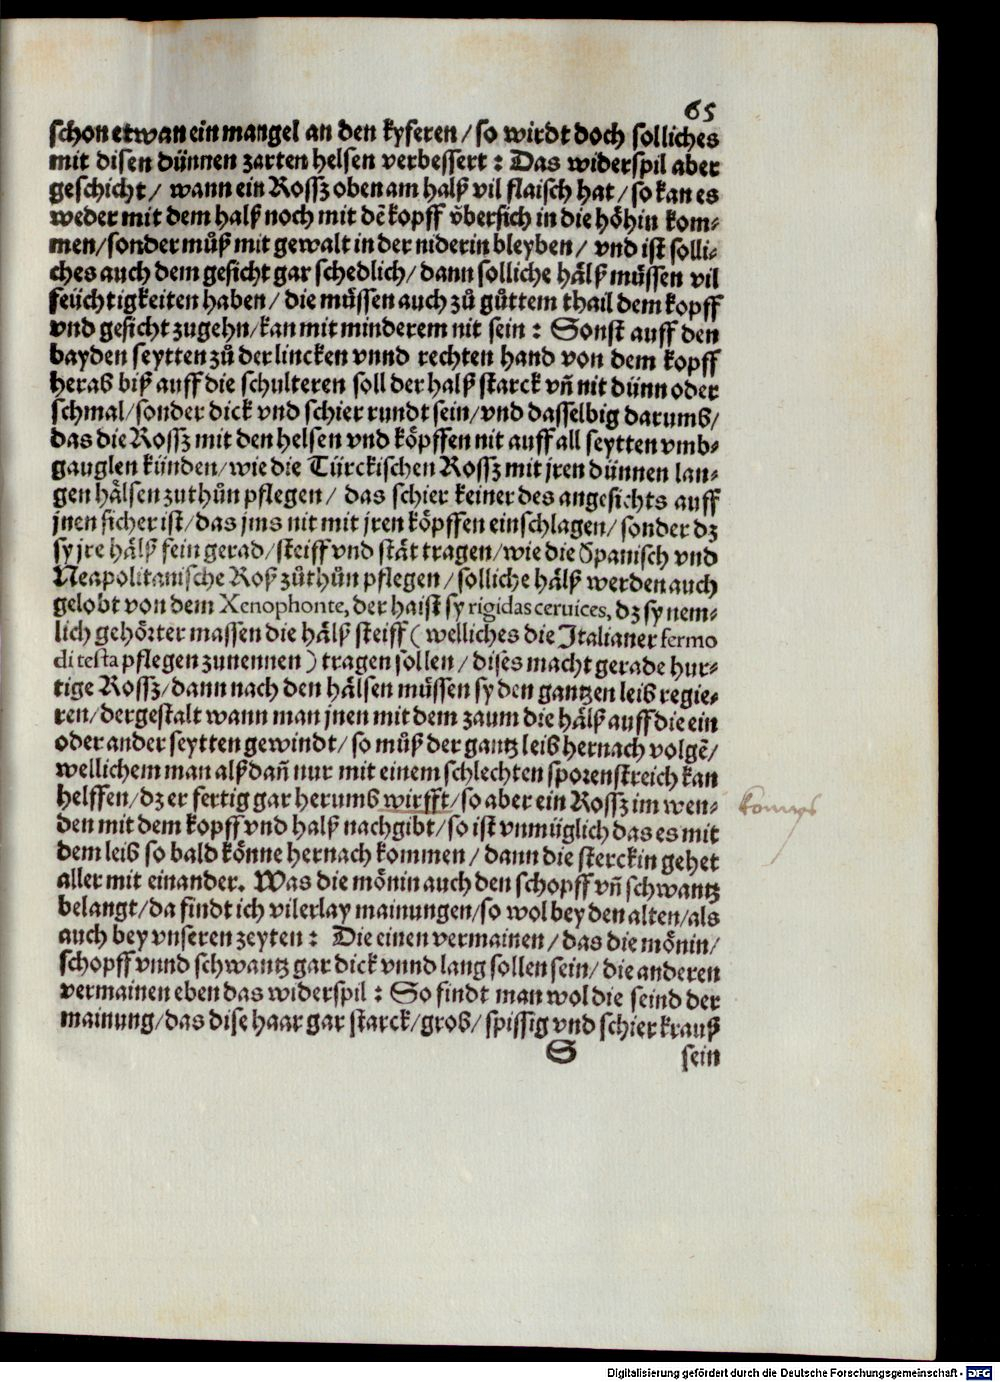 65
schon etwan ein mangel an den kyferen / so wirdt doch solliches
mit disen dünnen zarten helsen verbessert : Das widerspil aber
geschicht / wann ein Rossz oben am halß vil flaisch hat / so kan es
weder mit dem halß noch mit dẽ kopff v̈bersich in die höhin kom⸗
men/sonder můß mit gewalt in der niderin bleyben / vnd ist solli⸗
ches auch dem gesicht gar schedlich/ dann solliche hälß müssen vil
feüchtigkeiten haben / die müssen auch zů gůttem thail dem kopff
vnd gesicht zugehn/kan mit minderem nit sein : Sonst auff den
bayden seytten zů der lincken vnnd rechten hand von dem kopff
herab biß auff die schulteren soll der halß starck vñ nit dünn oder
schmal/sonder dick vnd schier rundt sein/vnd dasselbig darumb/
das die Rossz mit den helsen vnd köpffen nit auff all seytten vmb⸗
gauglen künden/wie die Türckischen Rossz mit jren dünnen lan⸗
gen hälsen zuthůn pflegen / das schier keiner des angesichts auff
jnen sicher ist/das jms nit mit jren köpffen einschlagen/ sonder dz
sy jre hälß fein gerad/steiff vnd stät tragen/wie die Spanisch vnd
Neapolitanische Roß zůthůn pflegen / solliche hälß werden auch
gelobt von dem Xenophonte, der haist sy rigidas ceruices, dz sy nem⸗
lich gehörter massen die hälß steiff ( welliches die Italianer fermo
di testa pflegen zunennen ) tragen sollen / dises macht gerade hur⸗
tige Rossz/dann nach den hälsen müssen sy den gantzen leib regie⸗
ren/dergestalt wann man jnen mit dem zaum die hälß auff die ein
oder ander seytten gewindt/ so můß der gantz leib hernach volgẽ/
wellichem man alß dañ nur mit einem schlechten sporenstreich kan
helffen/dz er fertig gar herumb wirfft/so aber ein Rossz im wen⸗
den mit dem kopff vnd halß nachgibt/so ist vnmüglich das es mit
dem leib so bald könne hernach kommen / dann die sterckin gehet
aller mit einander. Was die mönin auch den schopff vñ schwantz
belangt/da findt ich vilerlay mainungen/so wol bey den alten/als
auch bey vnseren zeyten : Die einen vermainen / das die mönin/
schopff vnnd schwantz gar dick vnnd lang sollen sein/ die anderen
vermainen eben das widerspil : So findt man wol die seind der
mainung/das dise haar gar starck/grob/ spissig vnd schier krauß
S sein
Digitalisierung gefördert durch die Deutsche Forschungsgemeinschaft - DFG